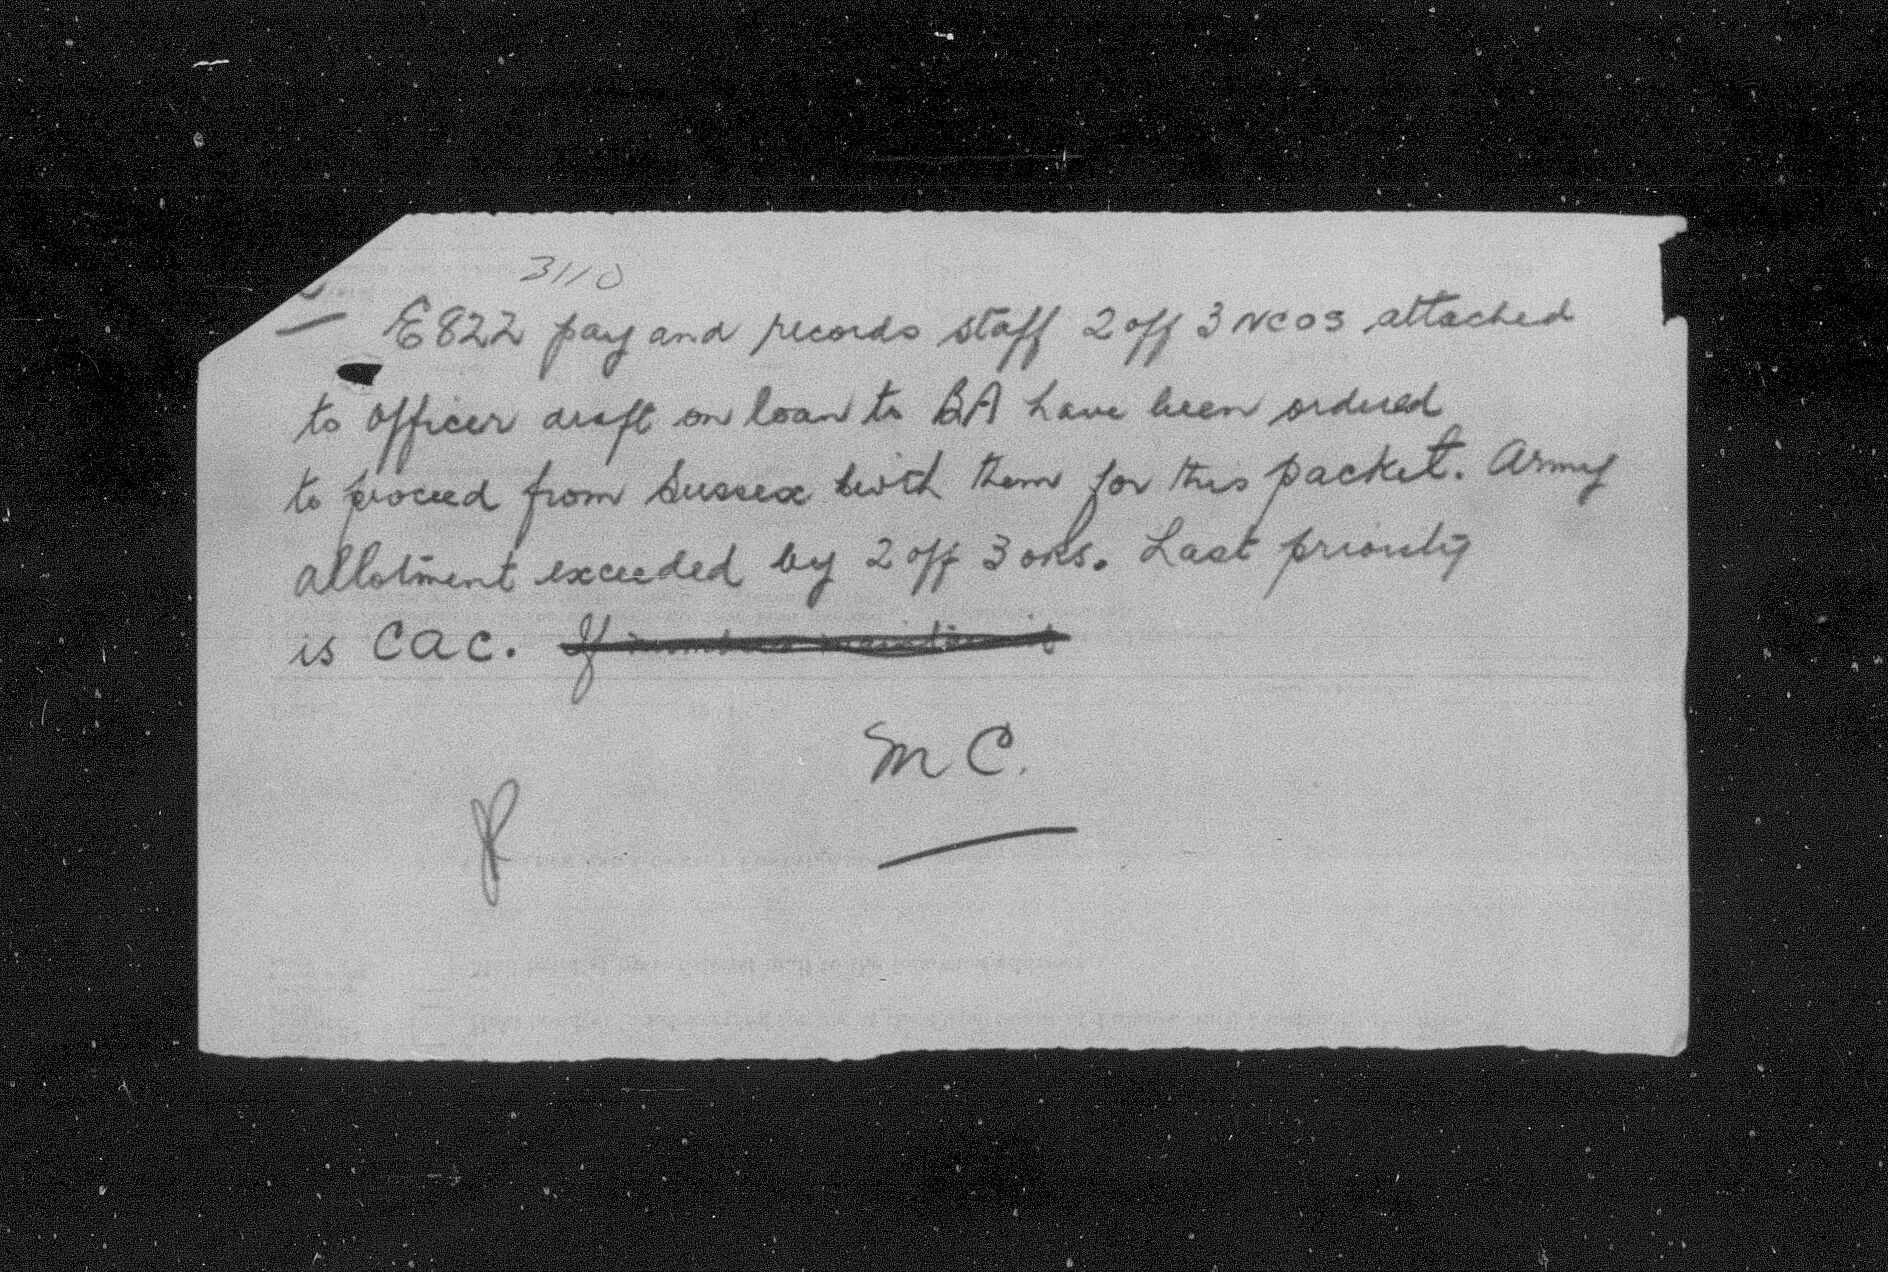 3110
E822 pay and records staff 2 off 3 NCOS attached
to officer draft on loan to BA have been ordered
to proceed from Sussex with them for this packet. Army
allotment exceeded by 2 off 3 ORS. Last priority
is CAC. If
MC.